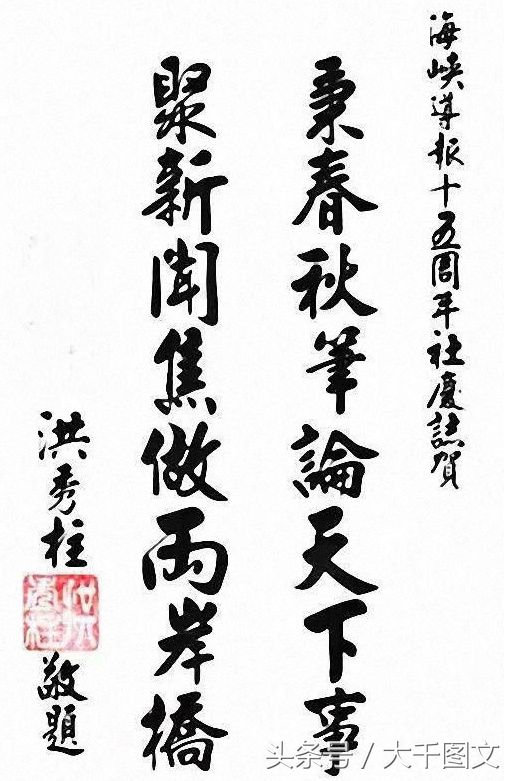 海峽導報十五周年社慶誌賀
秉春秋筆論天下事
聚新聞焦做兩岸橋
洪秀柱
敬題
头条号 / 大千图文